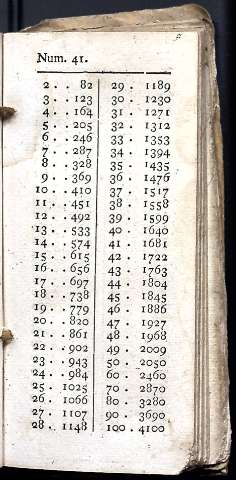 Num. 41.
2 . . 82 29 . 1189
3 . . 123 30 . 1230
4 . . 164 31 . 1271
5 . . 205 32 . 1312
6 . . 246 33 . 1353
7 . . 287 34 . 1394
8 . . 328 35 . 1435
9 . . 369 36 . 1476
10 . . 410 37 . 1517
11 . . 451 38 . 1558
12 . . 492 39 . 1599
13 . . 533 40 . 1640
14 . . 574 41 . 1681
15 . . 615 42 . 1722
16 . . 656 43 . 1763
17 . . 697 44 . 1804
18 . . 738 45 . 1845
19 . . 779 46 . 1886
20 . . 820 47 . 1927
21 . . 861 48 . 1968
22 . . 902 49 . 2009
23 . . 943 50 . 2050
24 . . 984 60 . 2460
25 . 1025 70 . 2870
26 . 1066 80 . 3280
27 . 1107 90 . 3690
28 . 1148 100 . 4100